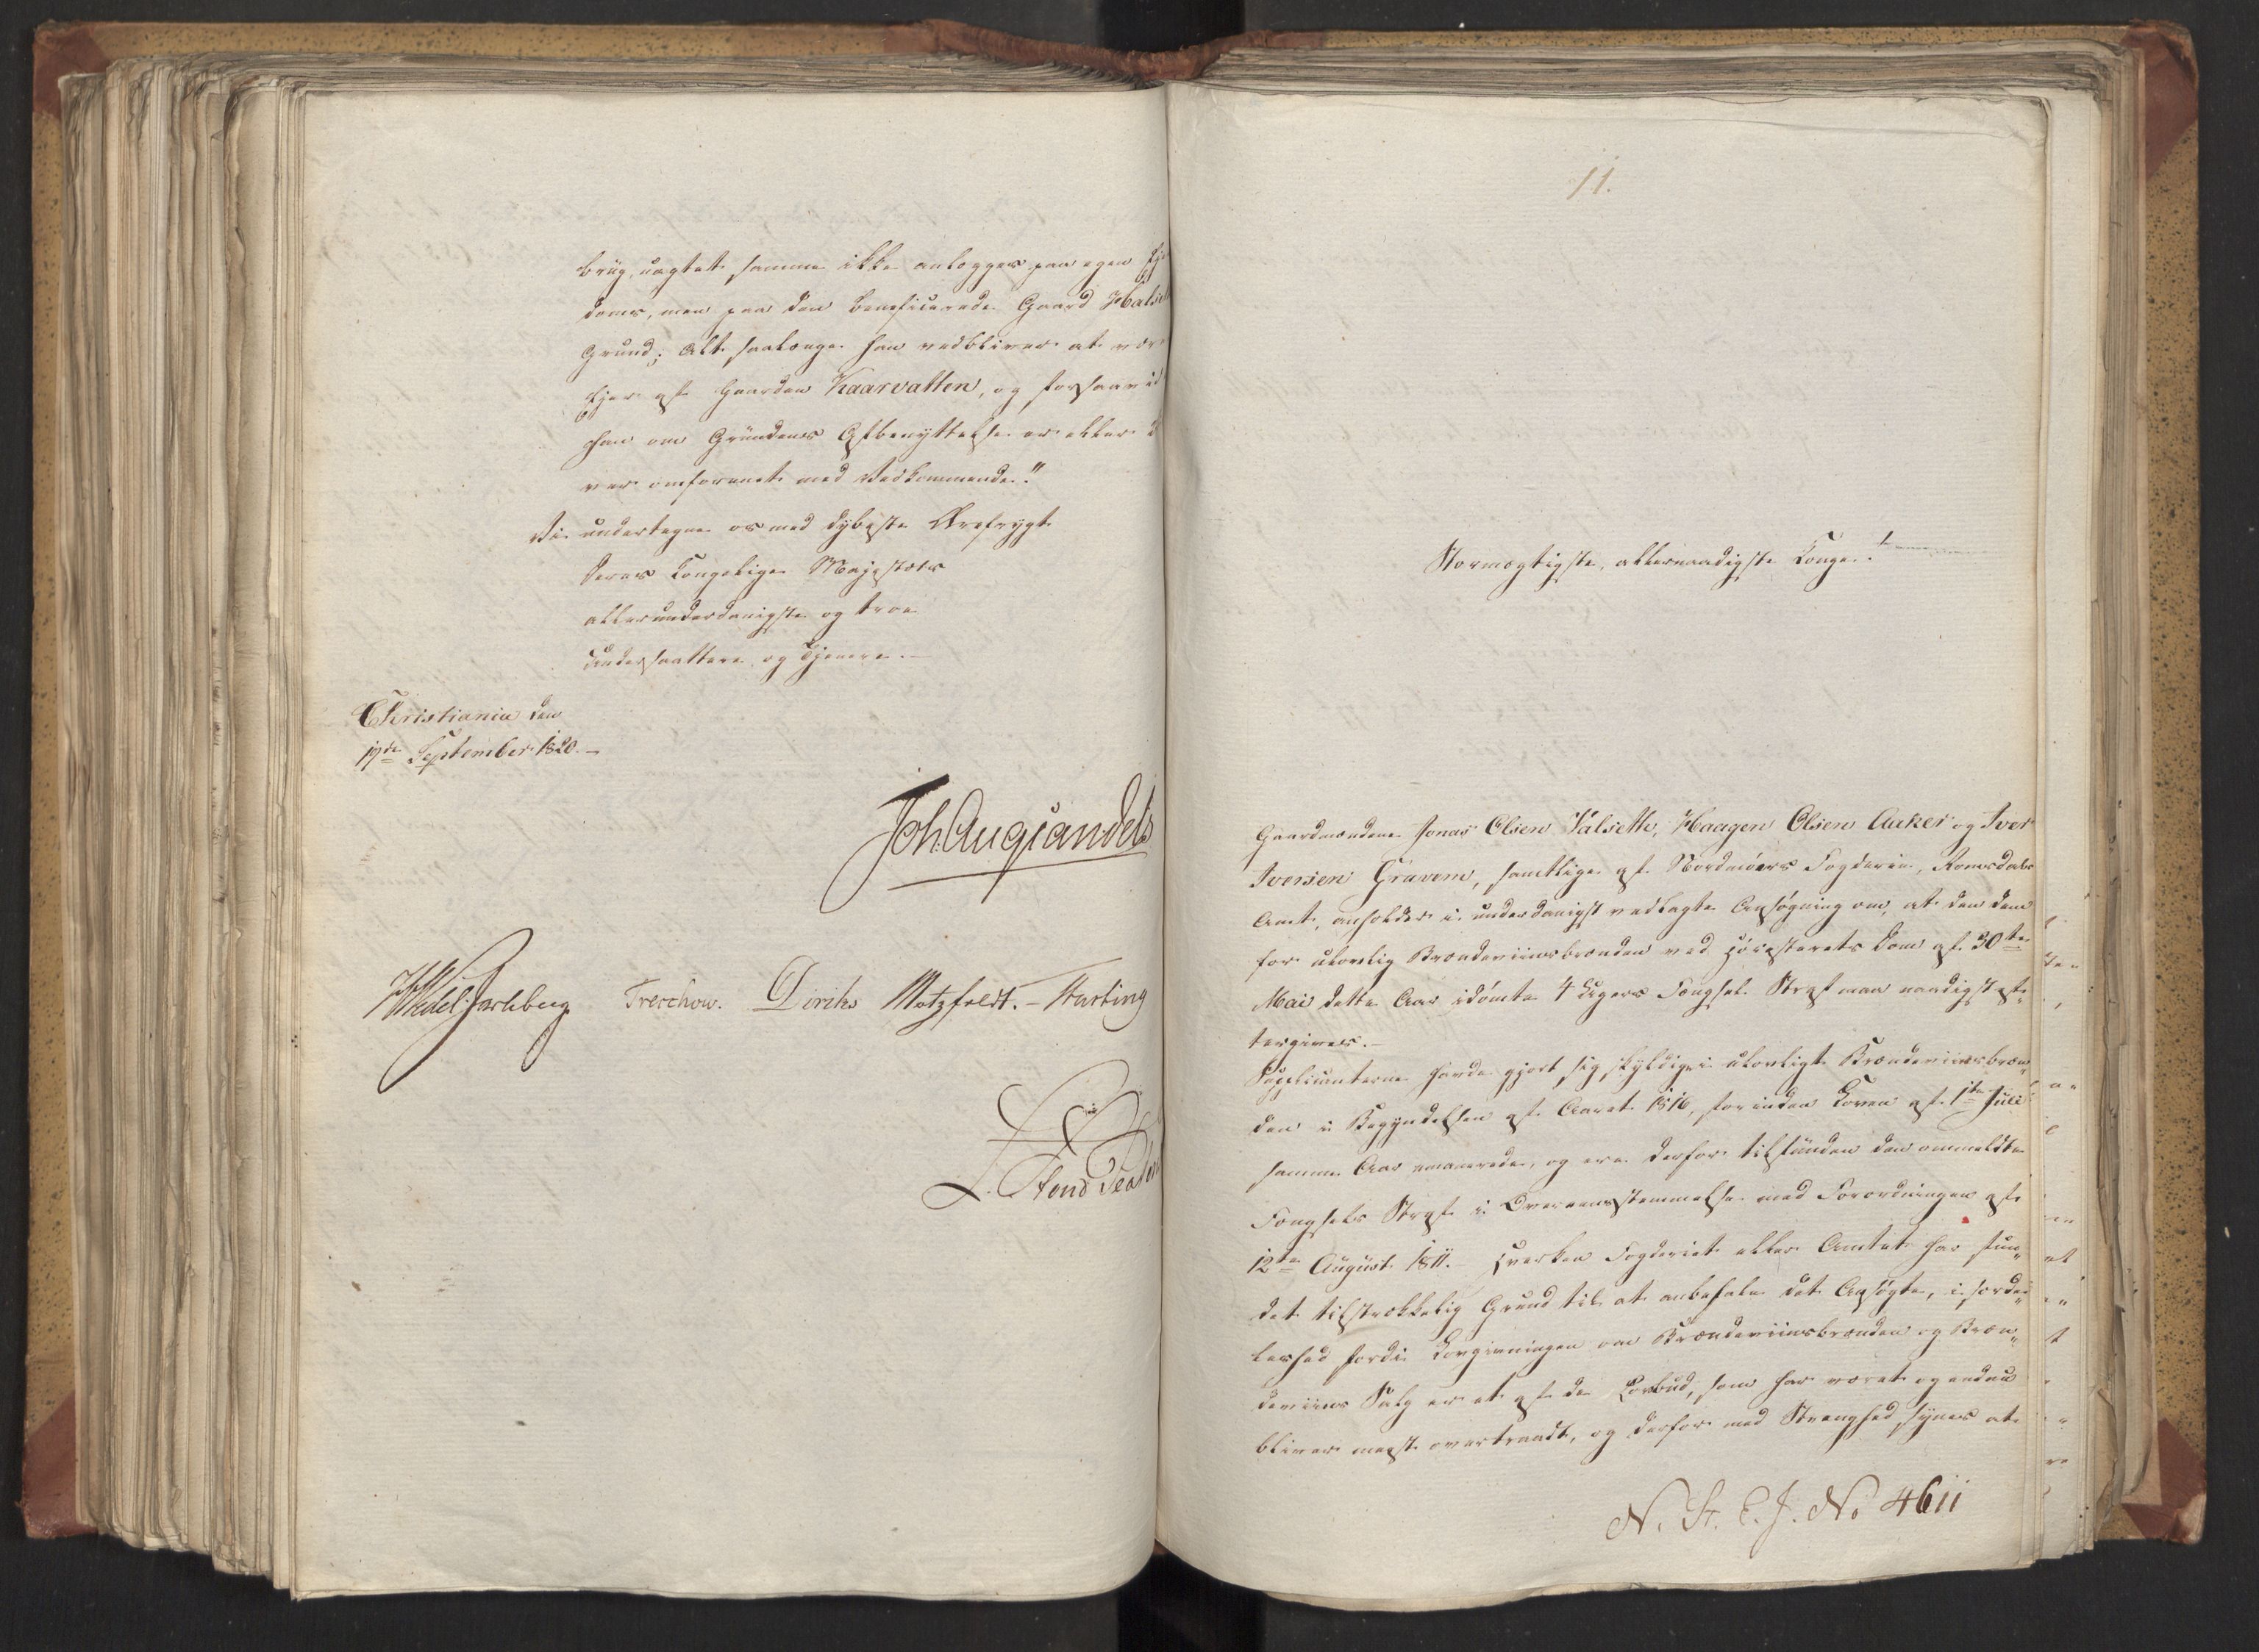 brug, uagtet samme ikke anlægges paa egen Ejen
doms, men paa den beneficerede Gaard Halset
Grund; Alt saalænge han vedbliver at være
Ejer af Gaarden Kaarvatten, og forsaavidt
han om Grundens Afbenyttelse er eller bli
ver omforenet med Vedkommende."
Vi undertegne os med dybeste Ærefrygt
Deres Kongelige Majestæts
allerunderdanigste og troe
Undersaattere og Tjenere.—
Christiania den
19de September 1820.—
Joh. Aug. Sandels
HWedel Jarlsberg Treschow. Diriks Motzfeldt. – Fasting
11.
Stormægtigste, allernaadigste Konge!
Gaardmændene Jonas Olsen Valsette, Haagen Olsen Aukes og Iver
Iversen Gravem, samtlige af Nordmøers Fogderie, Romsdals
Amt, anholder i underdanigst vedlagte Ansøgning om, at den dem
for ulovlig Brændeviinsbrænden ved Høiesterets Dom af 30te
Mai dette Aar idømte 4 Ugers Fængsel Straf maa naadigst ef„
tergives.—
Supplicanterne havde gjort sig skyldige i ulovligt Brændeviinsbræn„
den i Begyndelsen af Aaret 1816, forinden Loven af 1te Juli
samme Aar emanerede, og ere derfor tilfunden den ommeldte
Fængsels Straf i Overeensstemmelse med Forordningen af
12te August 1811. Hverken Fogderiet eller Amtet har fun„
det tilstrækkelig Grund til at anbefale det Ansøgte, i særde„
leshed fordi Lovgivningen om Brændeviinsbrænden og Bræn„
deviins Salg er et af de Lovbud, som har været og endnu
bliver meest overtraadt, og derfor med Strenghed synes at
N. St. E. J. No 4611